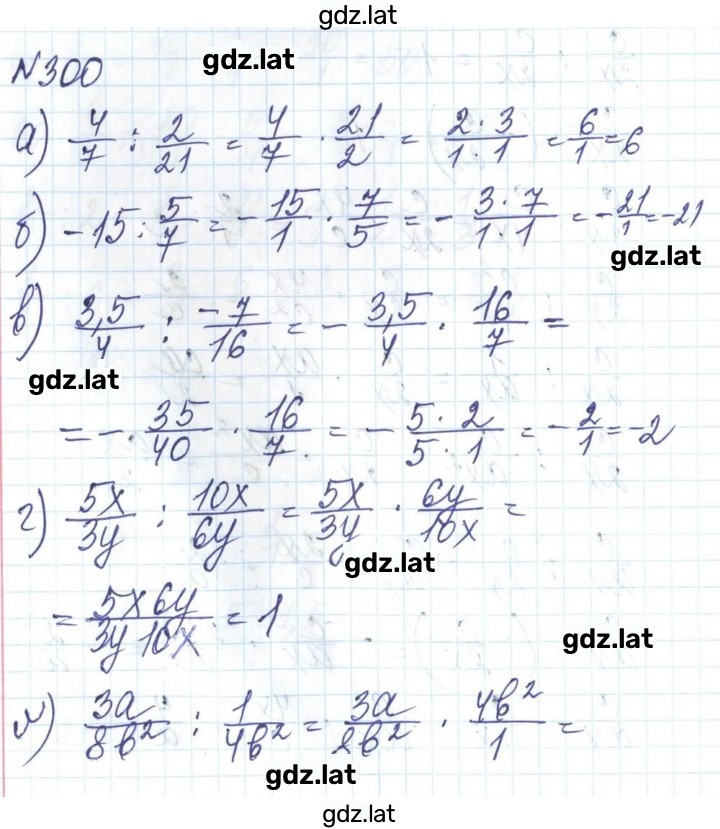 gdz.lat
№300
gdz.lat
а) 4/7 : 2/21 = 4/7 · 21/2 = 2·3/1·1 = 6/1 = 6
б) -15 : 5/7 = - 15/1 · 7/5 = - 3·7/1·1 = - 21/1 = -21
gdz.lat
в) 3,5/4 : -7/16 = - 3,5/4 · 16/7 =
gdz.lat
= - 35/40 · 16/7 = - 5·2/5·1 = - 2/1 = -2
г) 5x/3y : 10x/6y = 5x/3y · 6y/10x =
gdz.lat
= 5x6y/3y10x = 1
gdz.lat
д) 3a/8b² : 1/4b² = 3a/8b² · 4b²/1 =
gdz.lat
gdz.lat